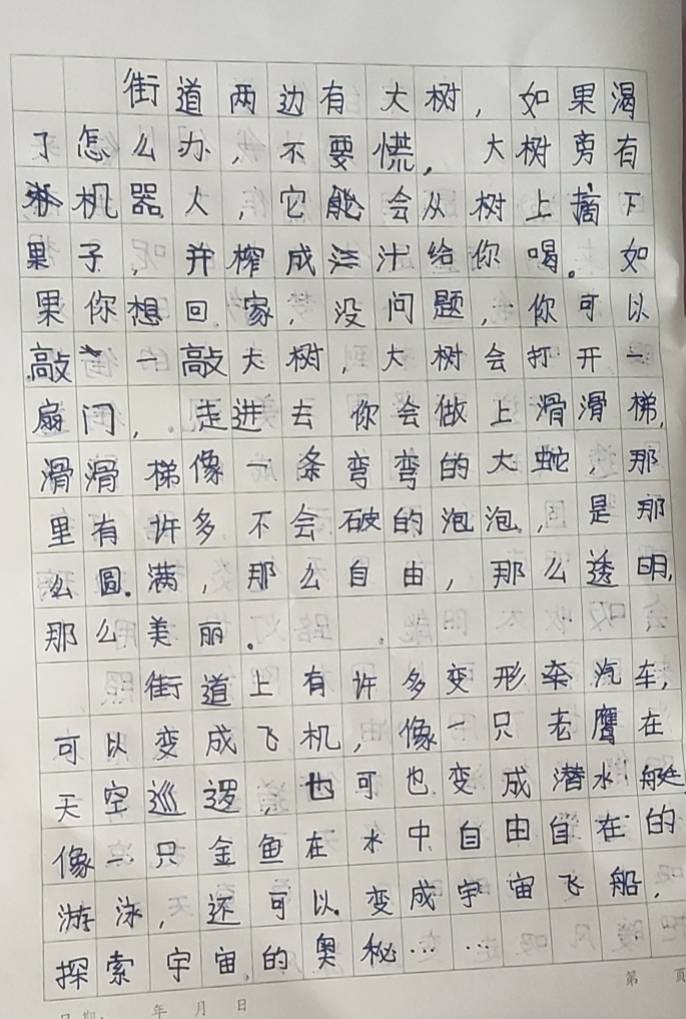 街道两边有大树，如果渴
了怎么办，不要慌，大树旁有
机器人，它会从树上摘下
果子，并榨成汁给你喝。如
果你想回家，没问题，你可以
敲一敲大树，大树会打开一
扇门，走进去你会做上滑滑梯，
滑滑梯像一条弯弯的大蛇，那
里有许多不会破的泡泡，是那
么圆满，那么自由，那么透明，
那么美丽。
街道上有许多变形汽车，
可以变成飞机，像一只老鹰在
天空巡逻，也可也变成潜水艇
像一只金鱼在水中自由自在的
游泳，还可以变成宇宙飞船，
探索宇宙的奥秘……
第 页
日期： 年 月 日